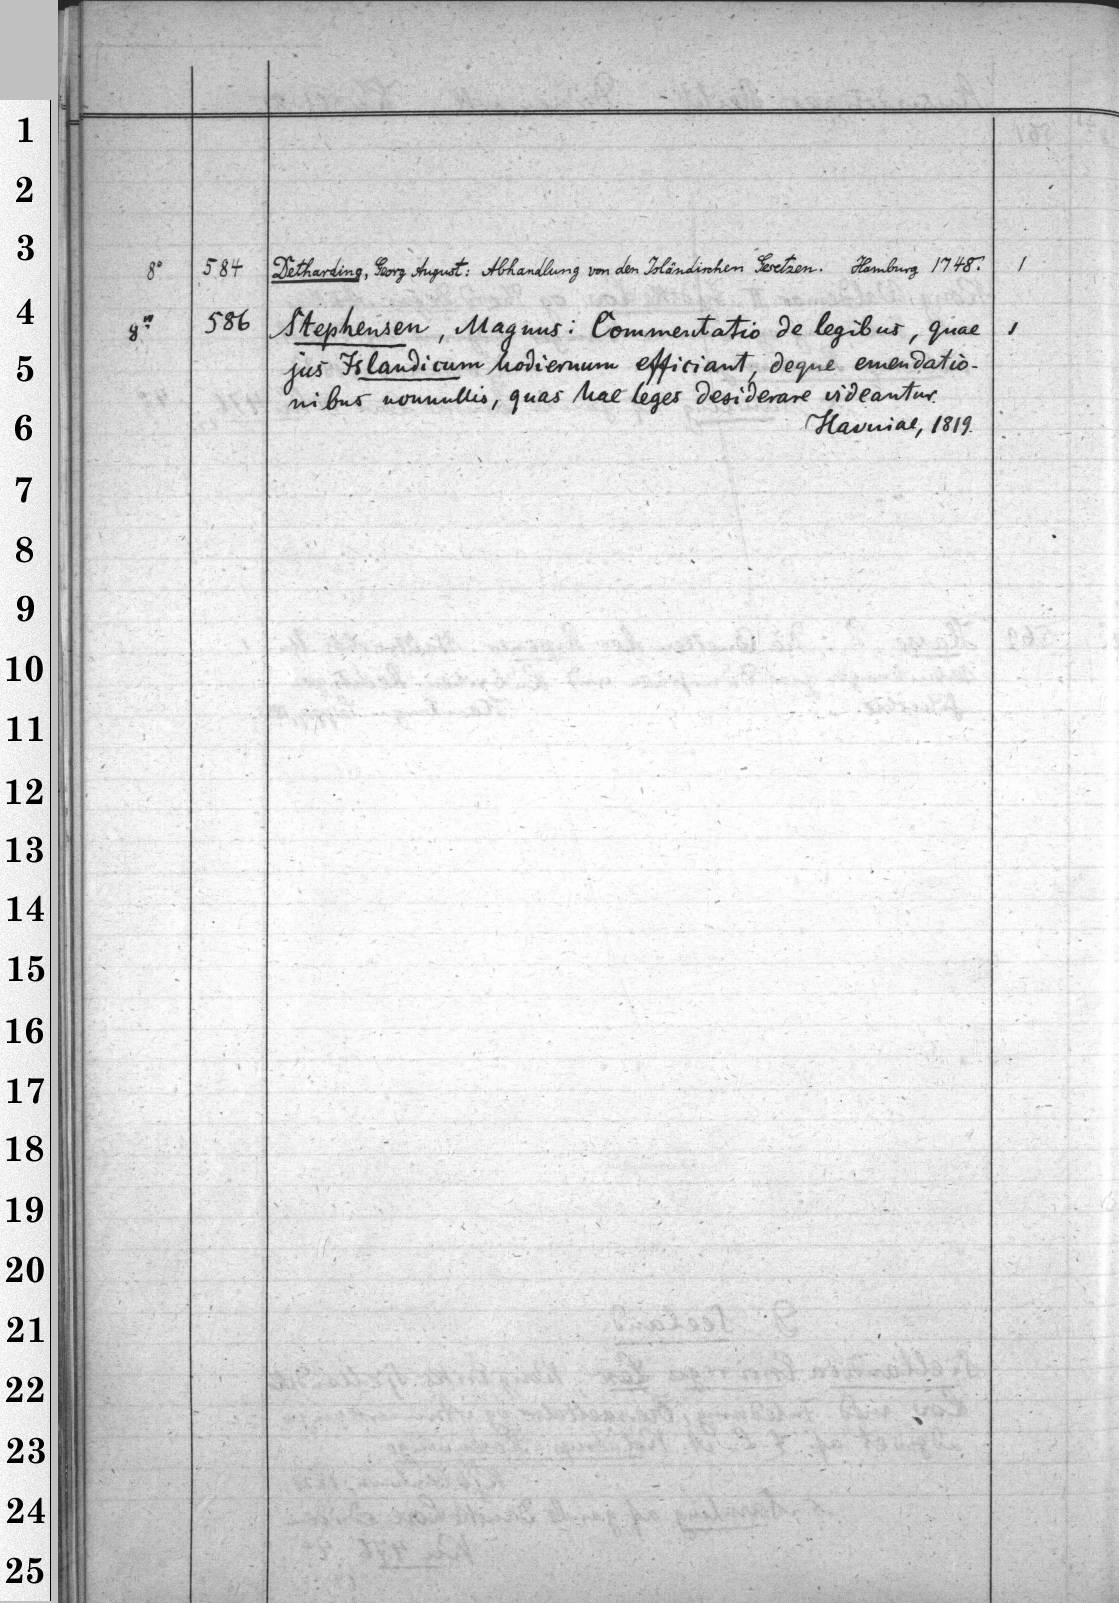 1
2
3
8° 584 Detharding, Georg August: Abhandlung von den Isländischen Gesetzen. Hamburg 1748. 1
4
8° 586 Stephensen, Magnus: Commentatio de legibus, quae 1
5
jus Islandicum hodiernum efficiant, deque emendatio-
nibus nonnullis, quas hae leges desiderare videantur.
6
Havniae, 1819.
7
8
9
10
11
12
13
14
15
16
17
18
19
20
21
22
23
24
25